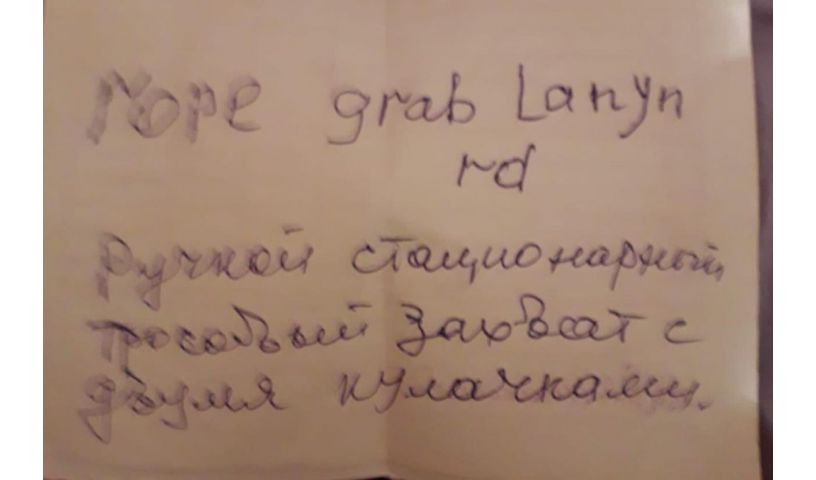 rope grab Lanyn
rd
ручной стационарный
тросовый захват с
двумя кулачками.